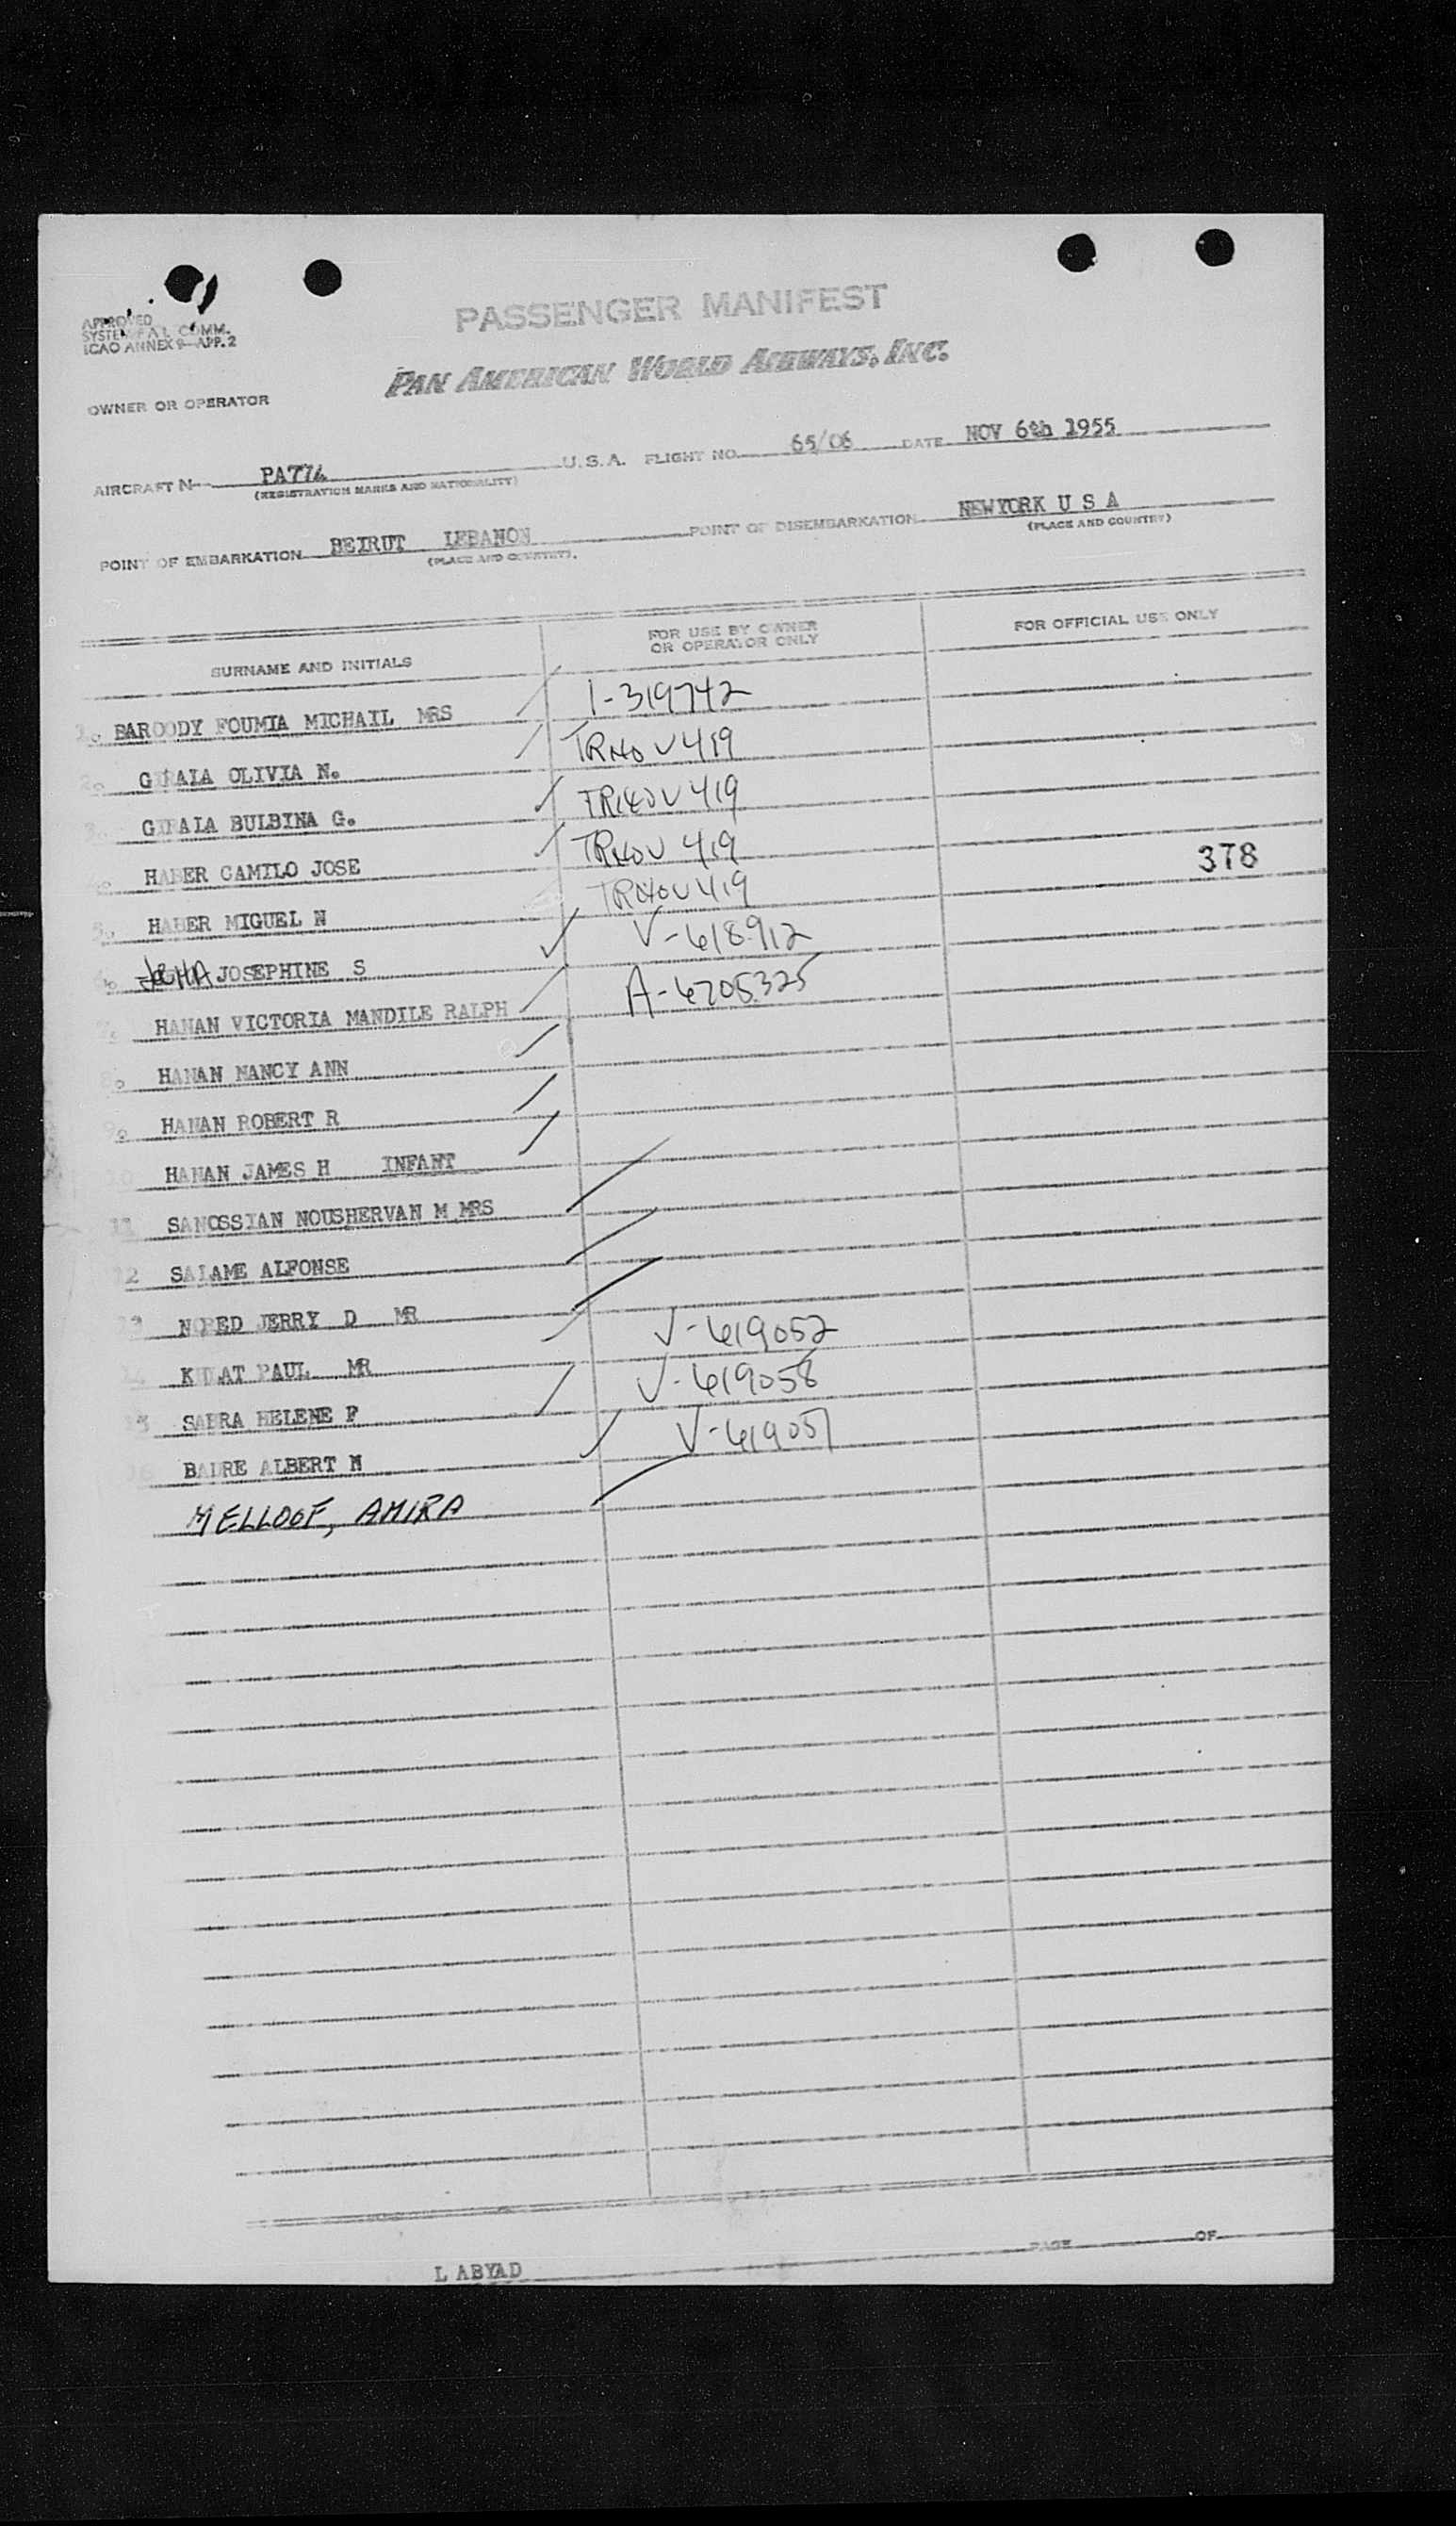 APPROVED
SYSTEM F A L COMM.
ICAO ANNEX 9—APP. 2
PASSENGER MANIFEST
PAN AMERICAN WORLD AIRWAYS, INC.
OWNER OR OPERATOR
AIRCRAFT N— PA774 U.S.A. FLIGHT NO. 65/06 DATE NOV 6th 1955
(REGISTRATION MARKS AND NATIONALITY)
POINT OF EMBARKATION BEIRUT LEBANON POINT OF DISEMBARKATION NEWYORK U S A
(PLACE AND COUNTRY). (PLACE AND COUNTRY)
SURNAME AND INITIALS FOR USE BY OWNER OR OPERATOR ONLY FOR OFFICIAL USE ONLY
1. BAROODY FOUMIA MICHAIL MRS 1-319742
2. GIRALA OLIVIA N. V419
3. GIRALA BULBINA G. V419
4. HABER CAMILO JOSE V 419
378
5. HABER MIGUEL N V419
6. JOSEPHINE S V-618912
7. HANAN VICTORIA MANDILE RALPH A-6705325
8. HANAN NANCY ANN
9. HANAN ROBERT R
10 HANAN JAMES H INFANT
11 SANOSSIAN NOUSHERVAN M MRS
12 SALAME ALFONSE
13 NORED JERRY D MR
14 PAUL MR V-619052
15 SABRA HELENE F V-619058
16 BADRE ALBERT N V-619057
MELLOOF, AMIRA
L ABYAD
PAGE OF